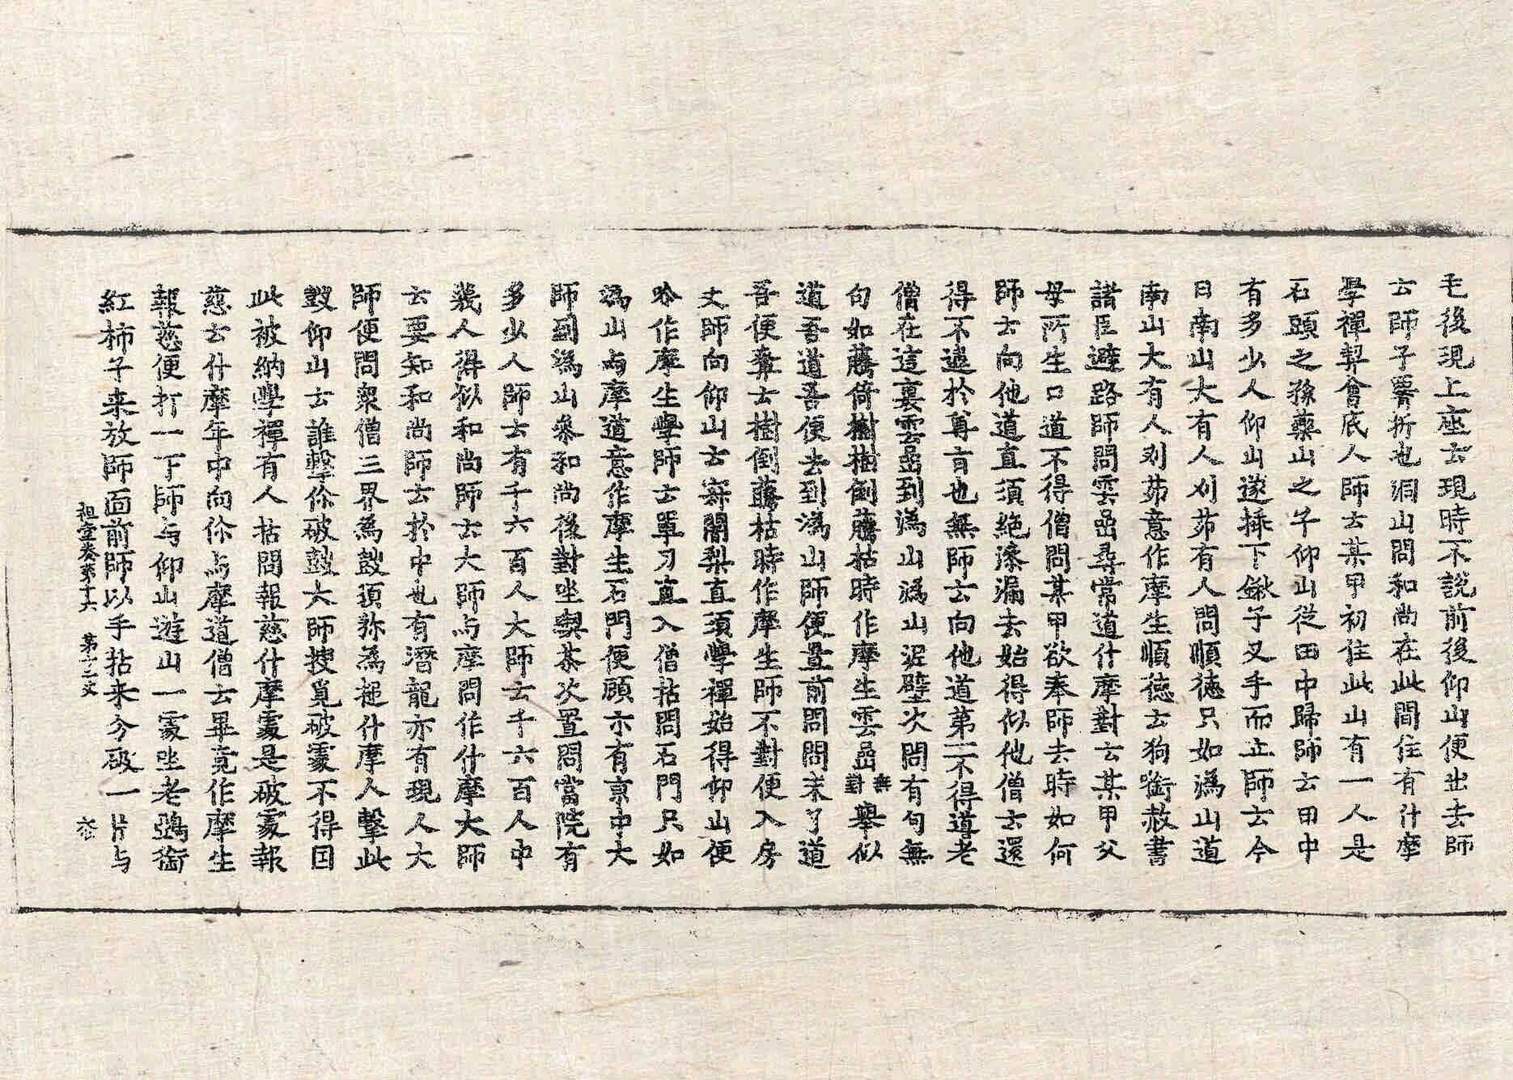 毛後現上座云現時不說前後仰山便出去師
云師子腰折也洞山問和尚在此間住有什摩
學禪契會底人師云某甲初住此山有一人是
石頭之孫藥山之子仰山從田中歸師云田中
有多少人仰山遂揷下鍬子叉手而立師云今
日南山大有人刈茆有人問順德只如溈山道
南山大有人刈茆意作摩生順德云狗銜赦書
諸臣避路師問雲嵒尋常道什摩對云某甲父
母所生口道不得僧問某甲欲奉師去時如何
師云向他道直須絕滲漏去始得似他僧云還
得不違於尊旨也無師云向他道第一不得道老
僧在這裏雲嵒到溈山溈山泥壁次問有句無
句如藤倚樹樹倒藤枯時作摩生雲嵒無對舉似
道吾道吾便去到溈山師便置前問問未了道
吾便奪云樹倒藤枯時作摩生師不對便入房
丈師向仰山云寂闍梨直須學禪始得仰山便
吟作摩生學師云單刀直入僧拈問石門只如
溈山与摩道意作摩生石門便顧亦有京中大
師到溈山參和尚後對坐喫茶次置問當院有
多少人師云有千六百人大師云千六百人中
幾人得似和尚師云大師与摩問作什摩大師
云要知和尚師云於中也有潛龍亦有現人大
師便問衆僧三界為鼓須弥為槌什摩人擊此
鼓仰山云誰擊你破鼓大師搜覓破處不得因
此被納學禪有人拈問報慈什摩處是破處報
慈云什摩年中向你与摩道僧云畢竟作摩生
報慈便打一下師与仰山遊山一處坐老鵶銜
紅柿子来放師面前師以手拈来分破一片与
祖堂卷第十六 第十二丈